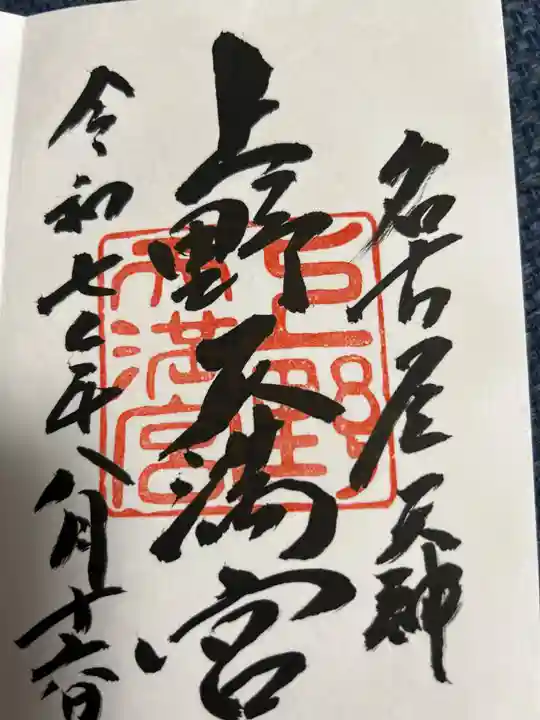 名古屋天神
上野天満宮
上野天満宮
令和七年八月十六日